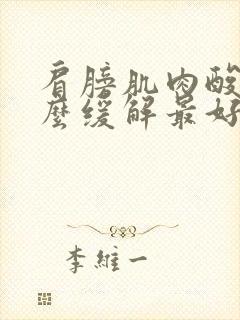 肩膀肌肉酸
麼缓解最好
李維一